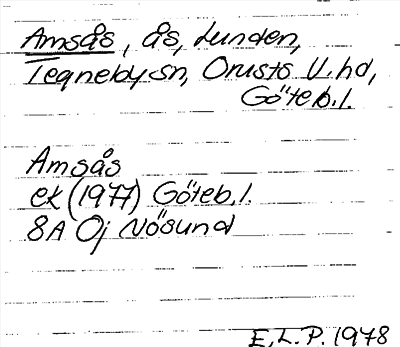 Amsås, ås, Lunden,
Tegneby sn, Orusts V. hd,
Göteb. l.
Amsås
ek (1977) Göteb. l.
8A 0j Nösund
E.L.P. 1978